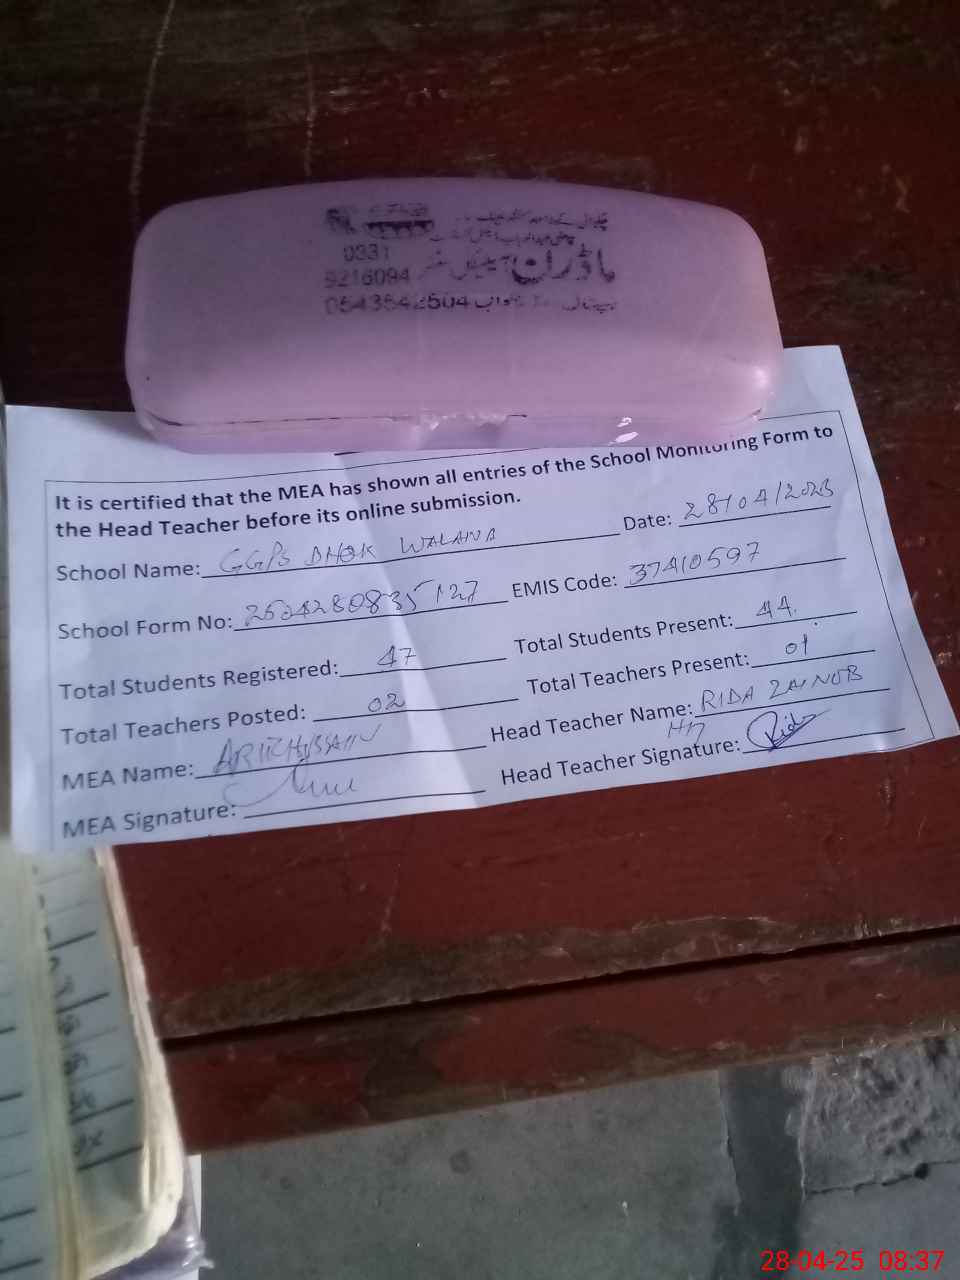 0331
9216094
ماڈرن
0543542504
It is certified that the MEA has shown all entries of the School Monitoring Form to
the Head Teacher before its online submission.
School Name: GGPS DHOK WALANA Date: 28/04/2025
School Form No: 2504280835127 EMIS Code: 37410597
Total Students Registered: 47 Total Students Present: 44
Total Teachers Posted: 02 Total Teachers Present: 01
MEA Name: Head Teacher Name: RIDA ZAINOB
MEA Signature: Head Teacher Signature: Rida
28-04-25 08:37